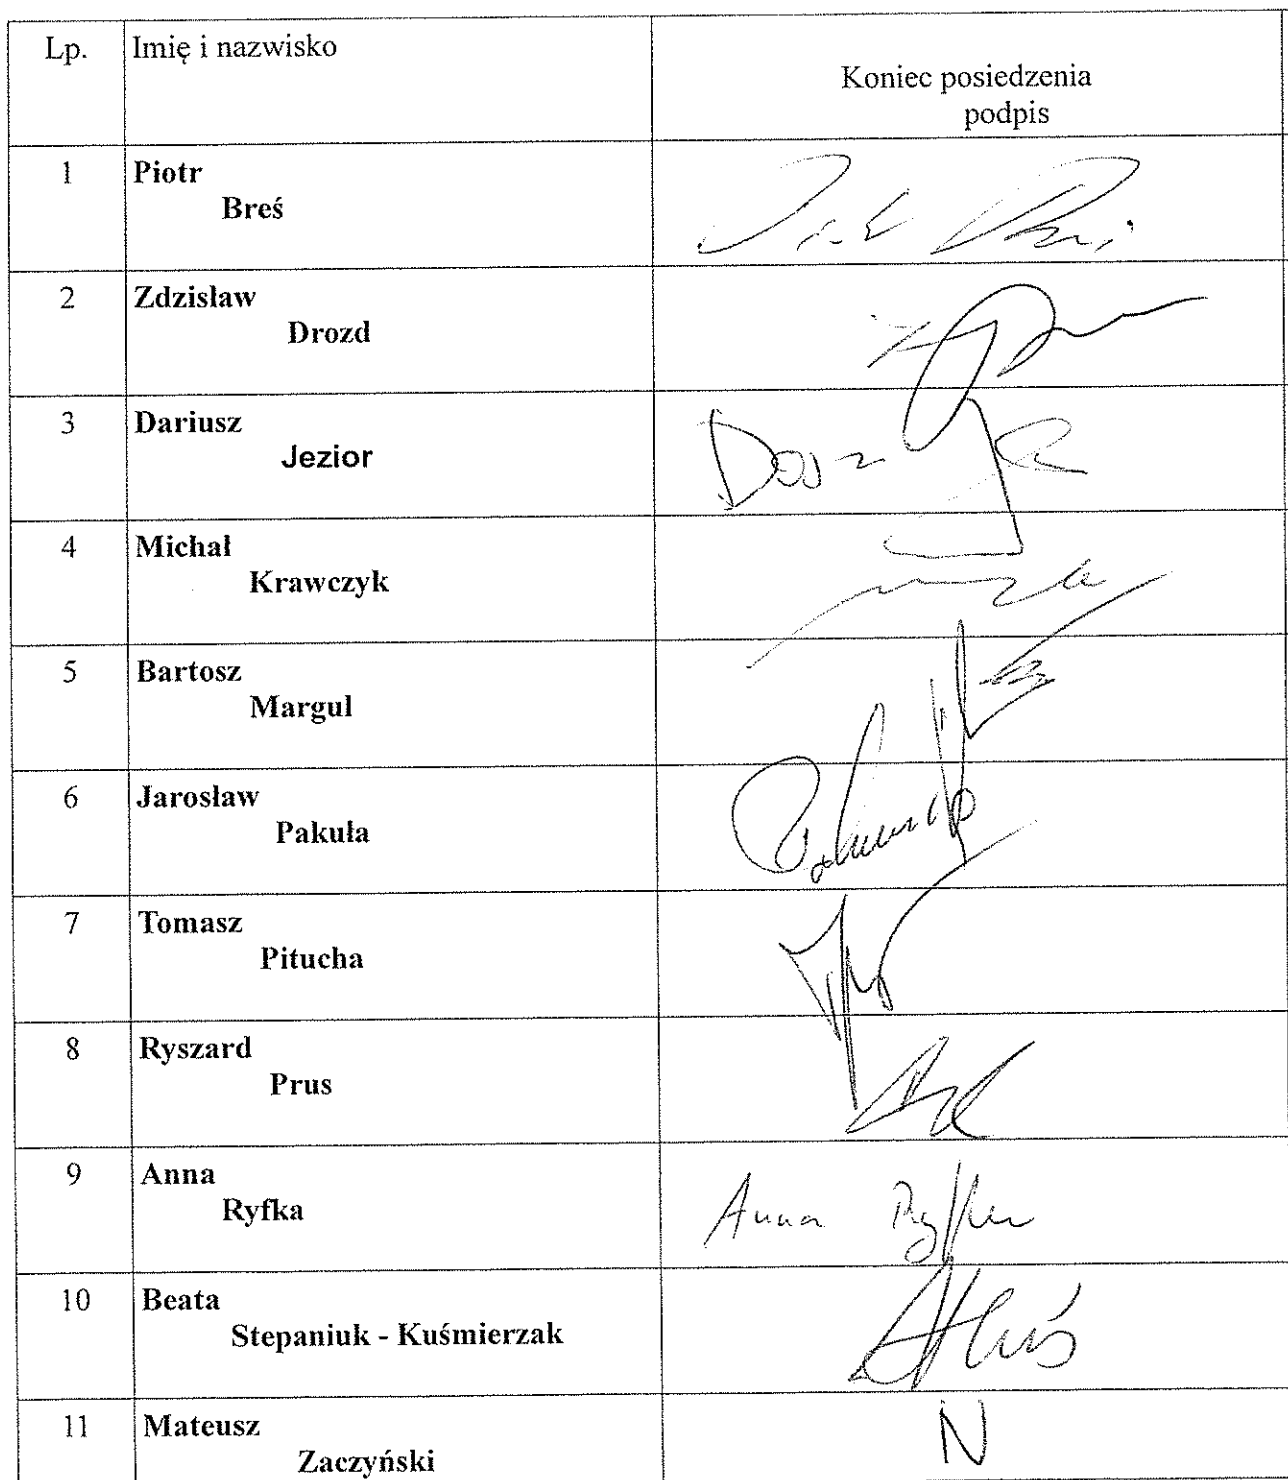 Lp. Imię i nazwisko
Koniec posiedzenia
podpis
1 Piotr
Breś
2 Zdzisław
Drozd
3 Dariusz
Jezior
4 Michał
Krawczyk
5 Bartosz
Margul
6 Jarosław
Pakuła
7 Tomasz
Pitucha
8 Ryszard
Prus
9 Anna
Ryfka
Anna Ryfka
10 Beata
Stepaniuk - Kuśmierzak
11 Mateusz
Zaczyński
N